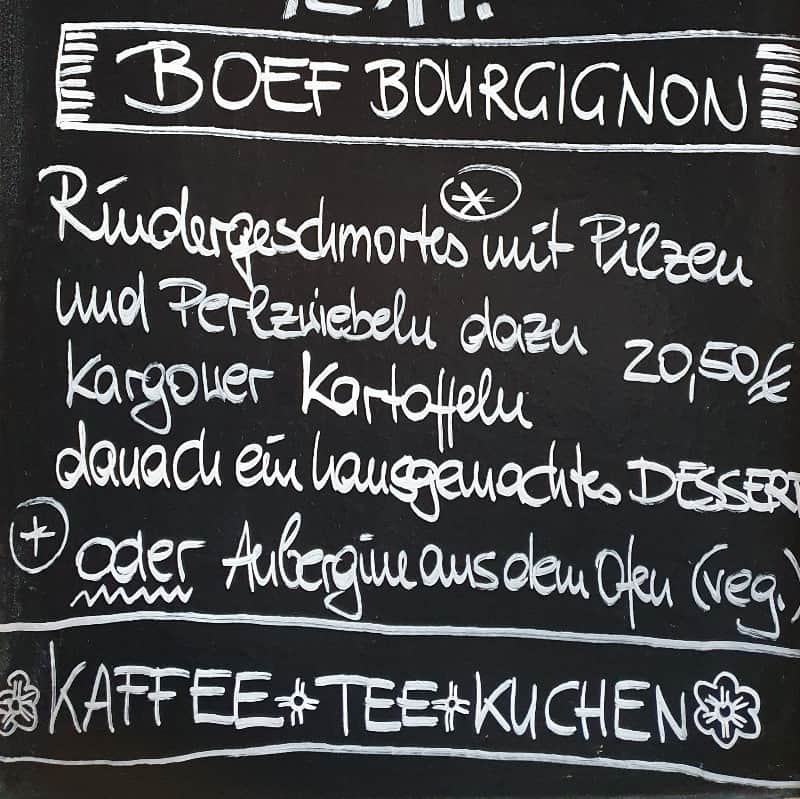 BOEF BOURGIGNON
Rindergeschmortes mit Pilzen
und Perlzwiebeln dazu
20,50€
Kargower Kartoffeln
danach ein hausgemachtes DESSERT
oder Aubergine aus dem Ofen (veg.)
KAFFEE TEE KUCHEN